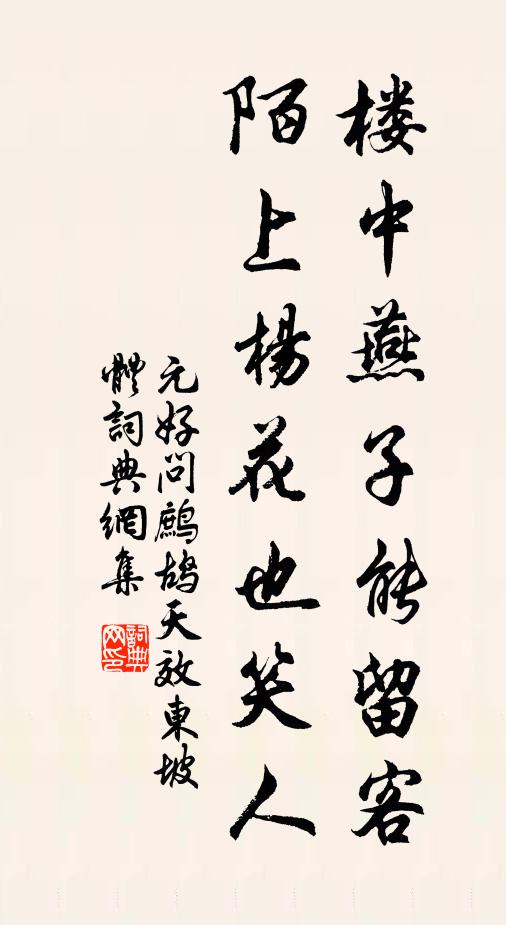 楼中燕子能留客
陌上楊花也笑人
元好问鷓鴣天效東坡
體詞典網集
詞典网印